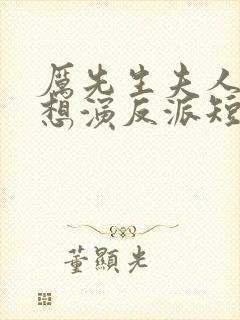 厲先生夫人
想演反派短
董顯光